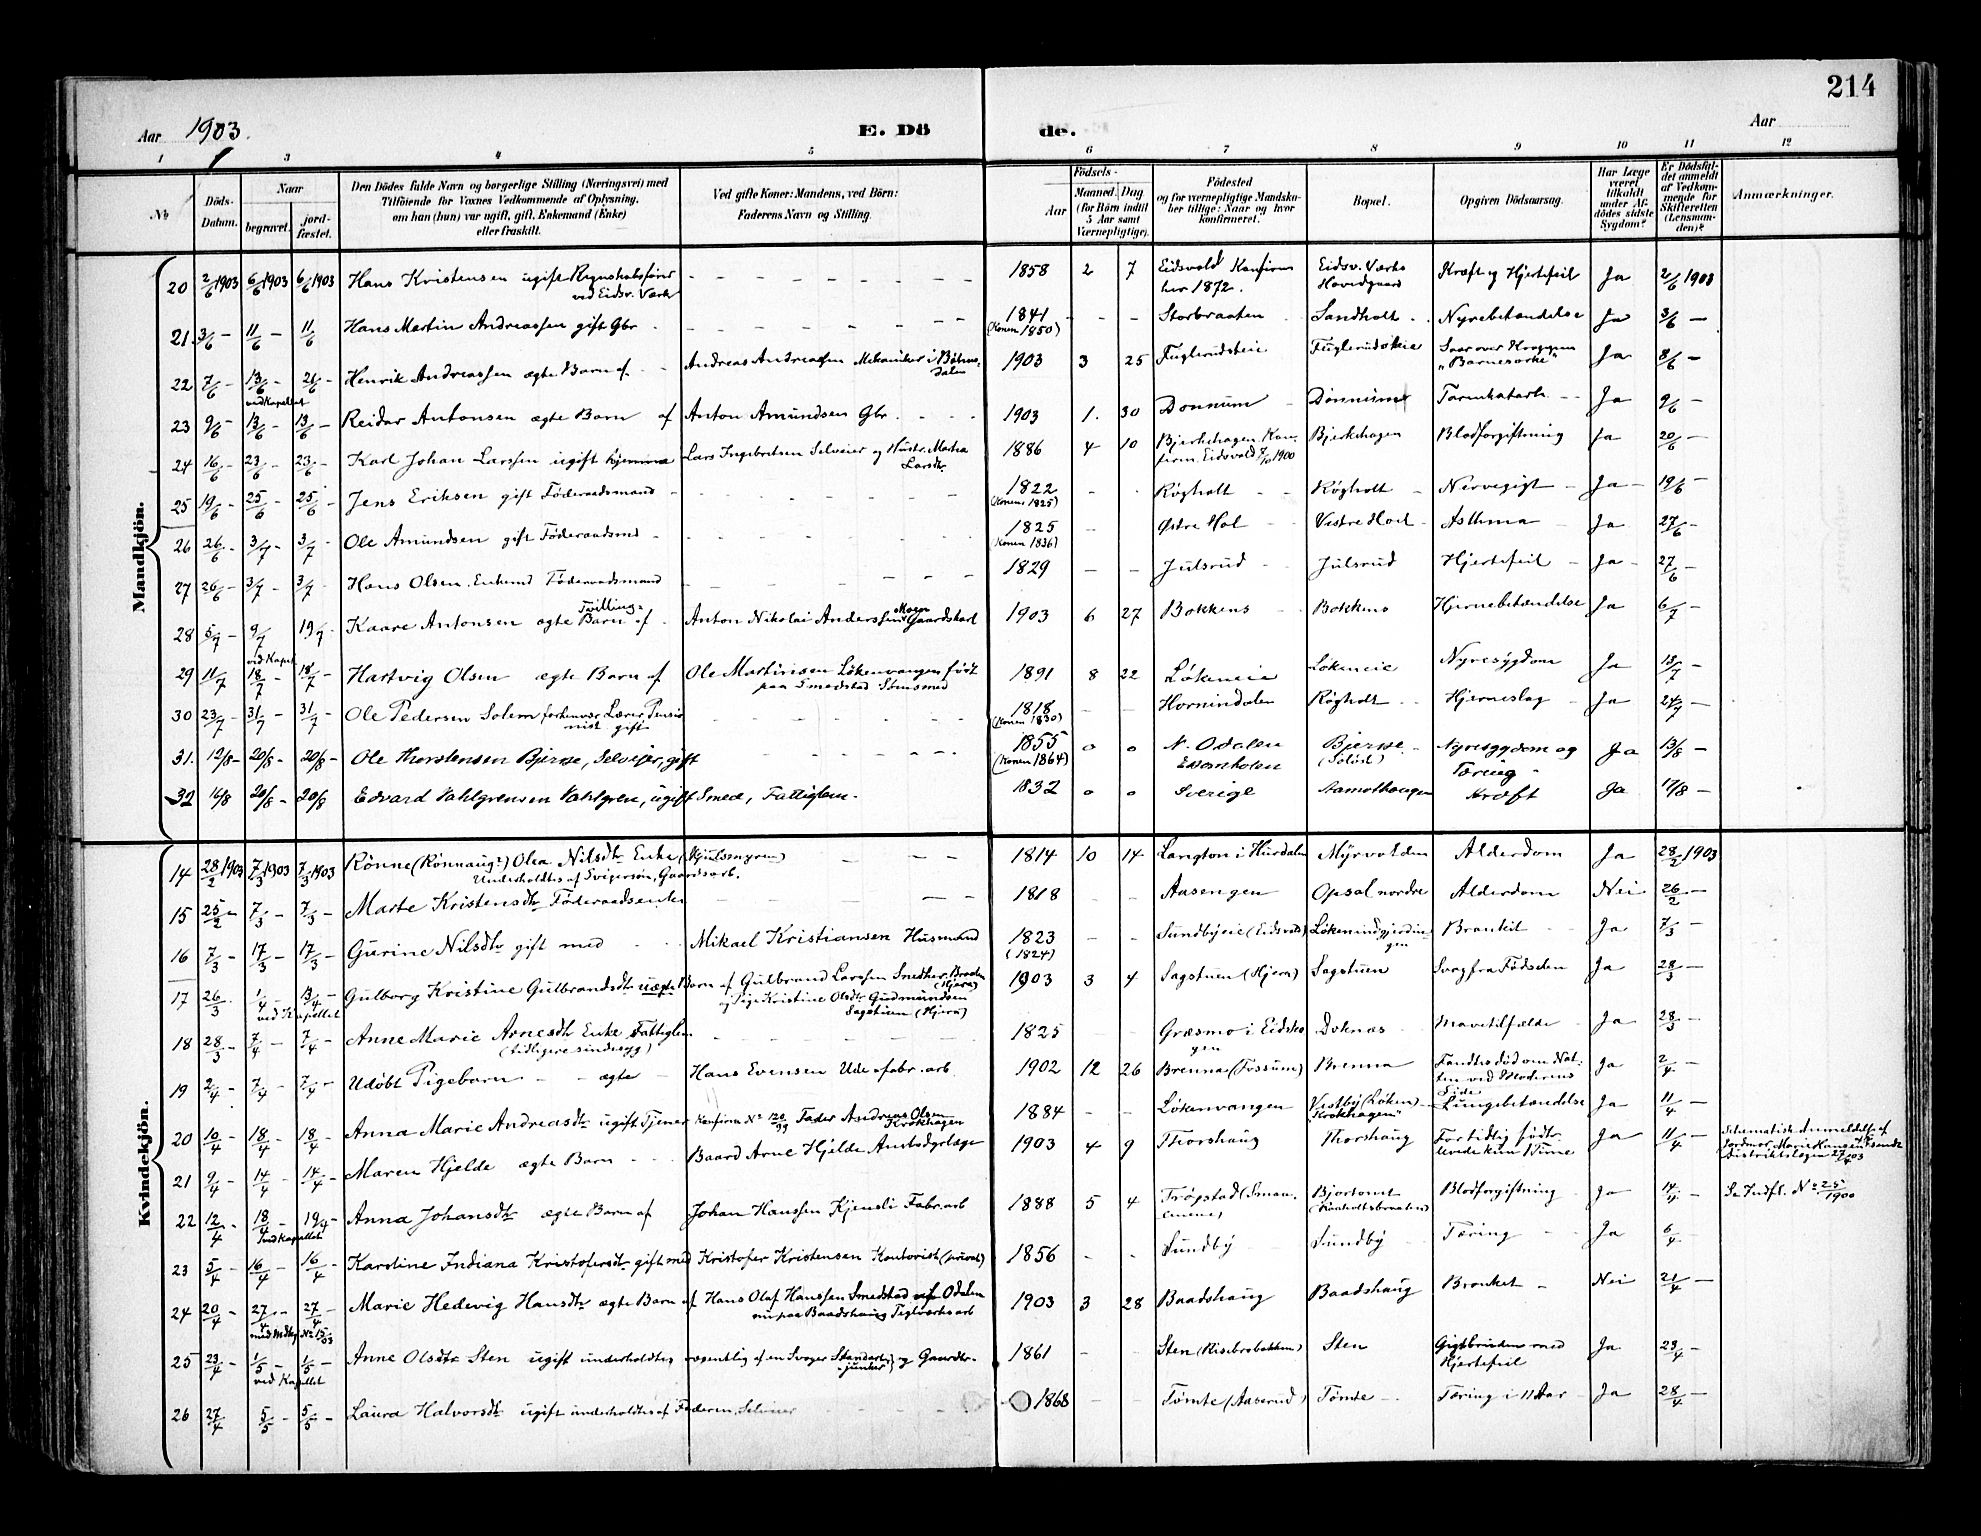 214
Aar 1903. E. Dö de. Aar
1 2 3 4 5 6 7 8 9 10 11 12
No Döds-Datum. Naar begravet. jord-fæstet. Den Dödes fulde Navn og borgerlige Stilling (Næringsvei) med Tilföiende for Voxnes Vedkommende af Oplysning, om han (hun) var ugift, gift, Enkemand (Enke) eller fraskilt. Ved gifte Koner: Mandens, ved Börn: Faderens Navn og Stilling. Födsels- Aar Maaned. Dag (for Börn indtil 5 Aar samt Værnepligtige). Födested og for værnepligtige Mandskaber tillige: Naar og hvor konfirmeret. Bopæl. Opgiven Dödsaarsag. Har Læge været tilkaldt under Afdödes sidste Sygdom? Er Dödsfaldet anmeldt af Vedkommende for Skifteretten (Lensmanden)? Anmærkninger.
Mandkjön.
20 2/6 1903 6/6 1903 6/6 1903 Hans Kristensen ugift Regnskabsfører ved Eidsv. Værk - - - 1858 2 7 Eidsvold Konfirm her 1872. Eidsv. Værks Hovedgaard Kræft og Hjertefeil Ja 2/6 1903
21. 3/6 - 11/6 - 11/6 Hans Martin Andreassen gift Gbr. - - - 1841 (Konen 1850) - - Storbraaten Sandholt Nyrebetændelse Ja 3/6 -
22 7/6 - 13/6 - ved Kapellet 21/6 - Henrik Andreassen ægte Barn af Andreas Andreassen Mekaniker i Bøhnsdalen 1903 3 25 Fuglerudseie Fuglerudseie Saar over Kroppen "Barneskorke" Ja 8/6 -
23 9/6 - 13/6 - 13/6 - Reidar Antonsen ægte Barn af Anton Amundsen Gbr. 1903 1. 30 Dønnum Dønnum Tarmkatarh Ja 9/6 -
24 16/6 - 23/6 - 23/6 - Karl Johan Larssen ugift hjemme Lars Ingebretsen Selveier og Hustr. Martea Larsdtr. 1886 4 10 Bjerkehagen Konfirm. Eidsvold 7/10 1900 Bjerkehagen Blodforgiftning Ja 20/6 -
25 19/6 - 25/6 - 25/6 - Jens Eriksen gift Føderaadsmand - - - 1822 (Konen 1825) - - Røgholt Røgholt Nervegigt Ja 19/6 -
26 26/6 - 3/7 - 3/7 - Ole Amundsen gift Føderaadsmd - 1825 (Konen 1836) - Østre Hol Vestre Hol Asthma Ja 27/6 -
27 26/6 - 3/7 - 3/7 Hans Olsen. Enkemd Føderaadsmand - - - 1829 - - Julsrud Julsrud Hjertefeil Ja 27/6 -
28 5/7 - 9/7 ved Kapel 19/7 - Kaare Antonsen ægte Tvilling-Barn af Anton Nikolai Anderssen Moen Gaardskarl 1903 6 27 Bakkens Bakkens Hjernebetændelse Ja 6/7 -
29 11/7 18/7 - 18/7 - Hartvig Olsen ægte Barn af Ole Martinisen Løkenvangen født paa Smedstad Stensmed 1891 8 22 Løkeneie Løkeneie Nyresygdom Ja 13/7 -
30 23/7 - 31/7 - 31/7 - Ole Pedersen Solem forhenvær. Lærer Pensionist gift - - - 1818 (Konen 1830) - - Hornindalen Røgholt Hjerneslag Ja 24/7 -
31. 12/8 - 20/8 - 20/8 - Ole Thorstensen Bjerke, Selveier, gift - - - 1855 (Konen 1864) o o N. Odalen Bjerke Nyresygdom og Tæring Ja 13/8 -
32 16/8 20/8 - 20/8 Edvard Vahlgrensen Vahlgren, ugift Smed, Fattiglem. 1832 o o Sverige Aamothaugen Kræft Ja 17/8 -
Kvindekjön.
14 28/2 1903 7/3 1903 7/3 1903 Rönne (Rönnaug?) Olea Nilsdtr Enke (Hjulsmyren) Underholdtes af Svigersøn, Gaardsarb. - - - 1814 10 14 Langton i Hurdalen Myrvolden Alderdom Ja 28/2 1903
15 25/2 - 7/3 - 7/3 - Marte Kristensdtr Føderaadsenke - - - 1818 - - Aasengen Opsal nordre Alderdom Nei 26/2 -
16 7/3 - 17/3 - 17/3 - Gurine Nilsdtr gift med Mikael Kristiansen Husmand 1823 (1824) - - Sundbyeie (Eidsvold) Bronkit - Ja 7/3 -
17 26/3 1/4 ved Kapellet 13/4 - Gulborg Kristine Gulbrandsdtr uægte Barn af Gulbrand Larssen Smedher. Braaten (Hjera) og Pige Kristine Olsdtr Gudmundsen Sagstuen (Hjera) 1903 3 4 Sagstuen (Hjera) Sagstuen Svag fra Fødselen Ja 28/3 -
18 28/3 - 7/4 - 7/4 - Anne Marie Arnesdtr Enke Fattiglem (tidligere sindssyg) - - - 1825 - - Græsmo i Eidskogen Doknæs Mavetilfælde Ja 28/3 -
19 2/4 - 7/4 - 7/4 - Udøbt Pigebarn - - ægte - Hans Evensen Uldv.fabr.arb. 1902 12 26 Brenna (Fossum) Brenna Fandtes død om Natten ved Moderens Side Ja 2/4 -
20 10/4 - 18/4 - 18/4 - Anna Marie Andreasdtr ugift Tjener Konfirm No 120/99 Fader Andreas Olsen Krokhagen 1884 - - Løkenvangen Vestby (Løken) "Krokhagen" Lungebetændelse Ja 11/4 -
21 9/4 - 14/4 - 14/4 - Maren Hjelde ægte Barn - - Baard Arne Hjelde Amtsdyrlæge 1903 4 9 Thorshaug Thorshaug For tidlig født levede kun 1 Time Ja 11/4 - Schematisk Anmeldelse af Jordmor Marie Hansen tilsendt Distriktslægen 27/4 03
22 12/4 - 18/4 - ved Kapellet 19/4 - Anna Johansdtr ægte Barn af Johan Hanssen Kjensli Fabr.arb 1888 5 4 Trøgstad Bjortomt Blodforgiftning Ja 14/4 - Se Indfl. No 25/1900
23 5/4 - 16/4 - 16/4 - Karoline Indiana Kristofersdtr gift med Kristofer Kristensen Kontorist (privat) 1856 - - Sundby Sundby Tæring Ja 6/4 -
24 20/4 - 27/4 - 27/4 - No 15/03 Marie Hedevig Hansdtr ægte Barn af Hans Olaf Hanssen Smedstad af Odalen nu paa Baadshaug Teglværksarb 1903 3 28 Baadshaug Baadshaug Bronket - Nei 21/4 -
25 23/4 - 1/5 - ved Kapellet 1/5 - Anne Olsdtr Sten ugift underholdtes væsentlig af en Svoger Standartjunker og Gaardbr. 1861 - - Sten (Risebrobakken) Sten Gigtbruden med Hjertefeil Ja 23/4 -
26 27/4 5/5 - 5/5 - Laura Halvorsdtr ugift underholdtes af Faderen, Selveier 1868 - - Tømte (Aaserud) Tømte Tæring i 11 Aar Ja 28/4 -